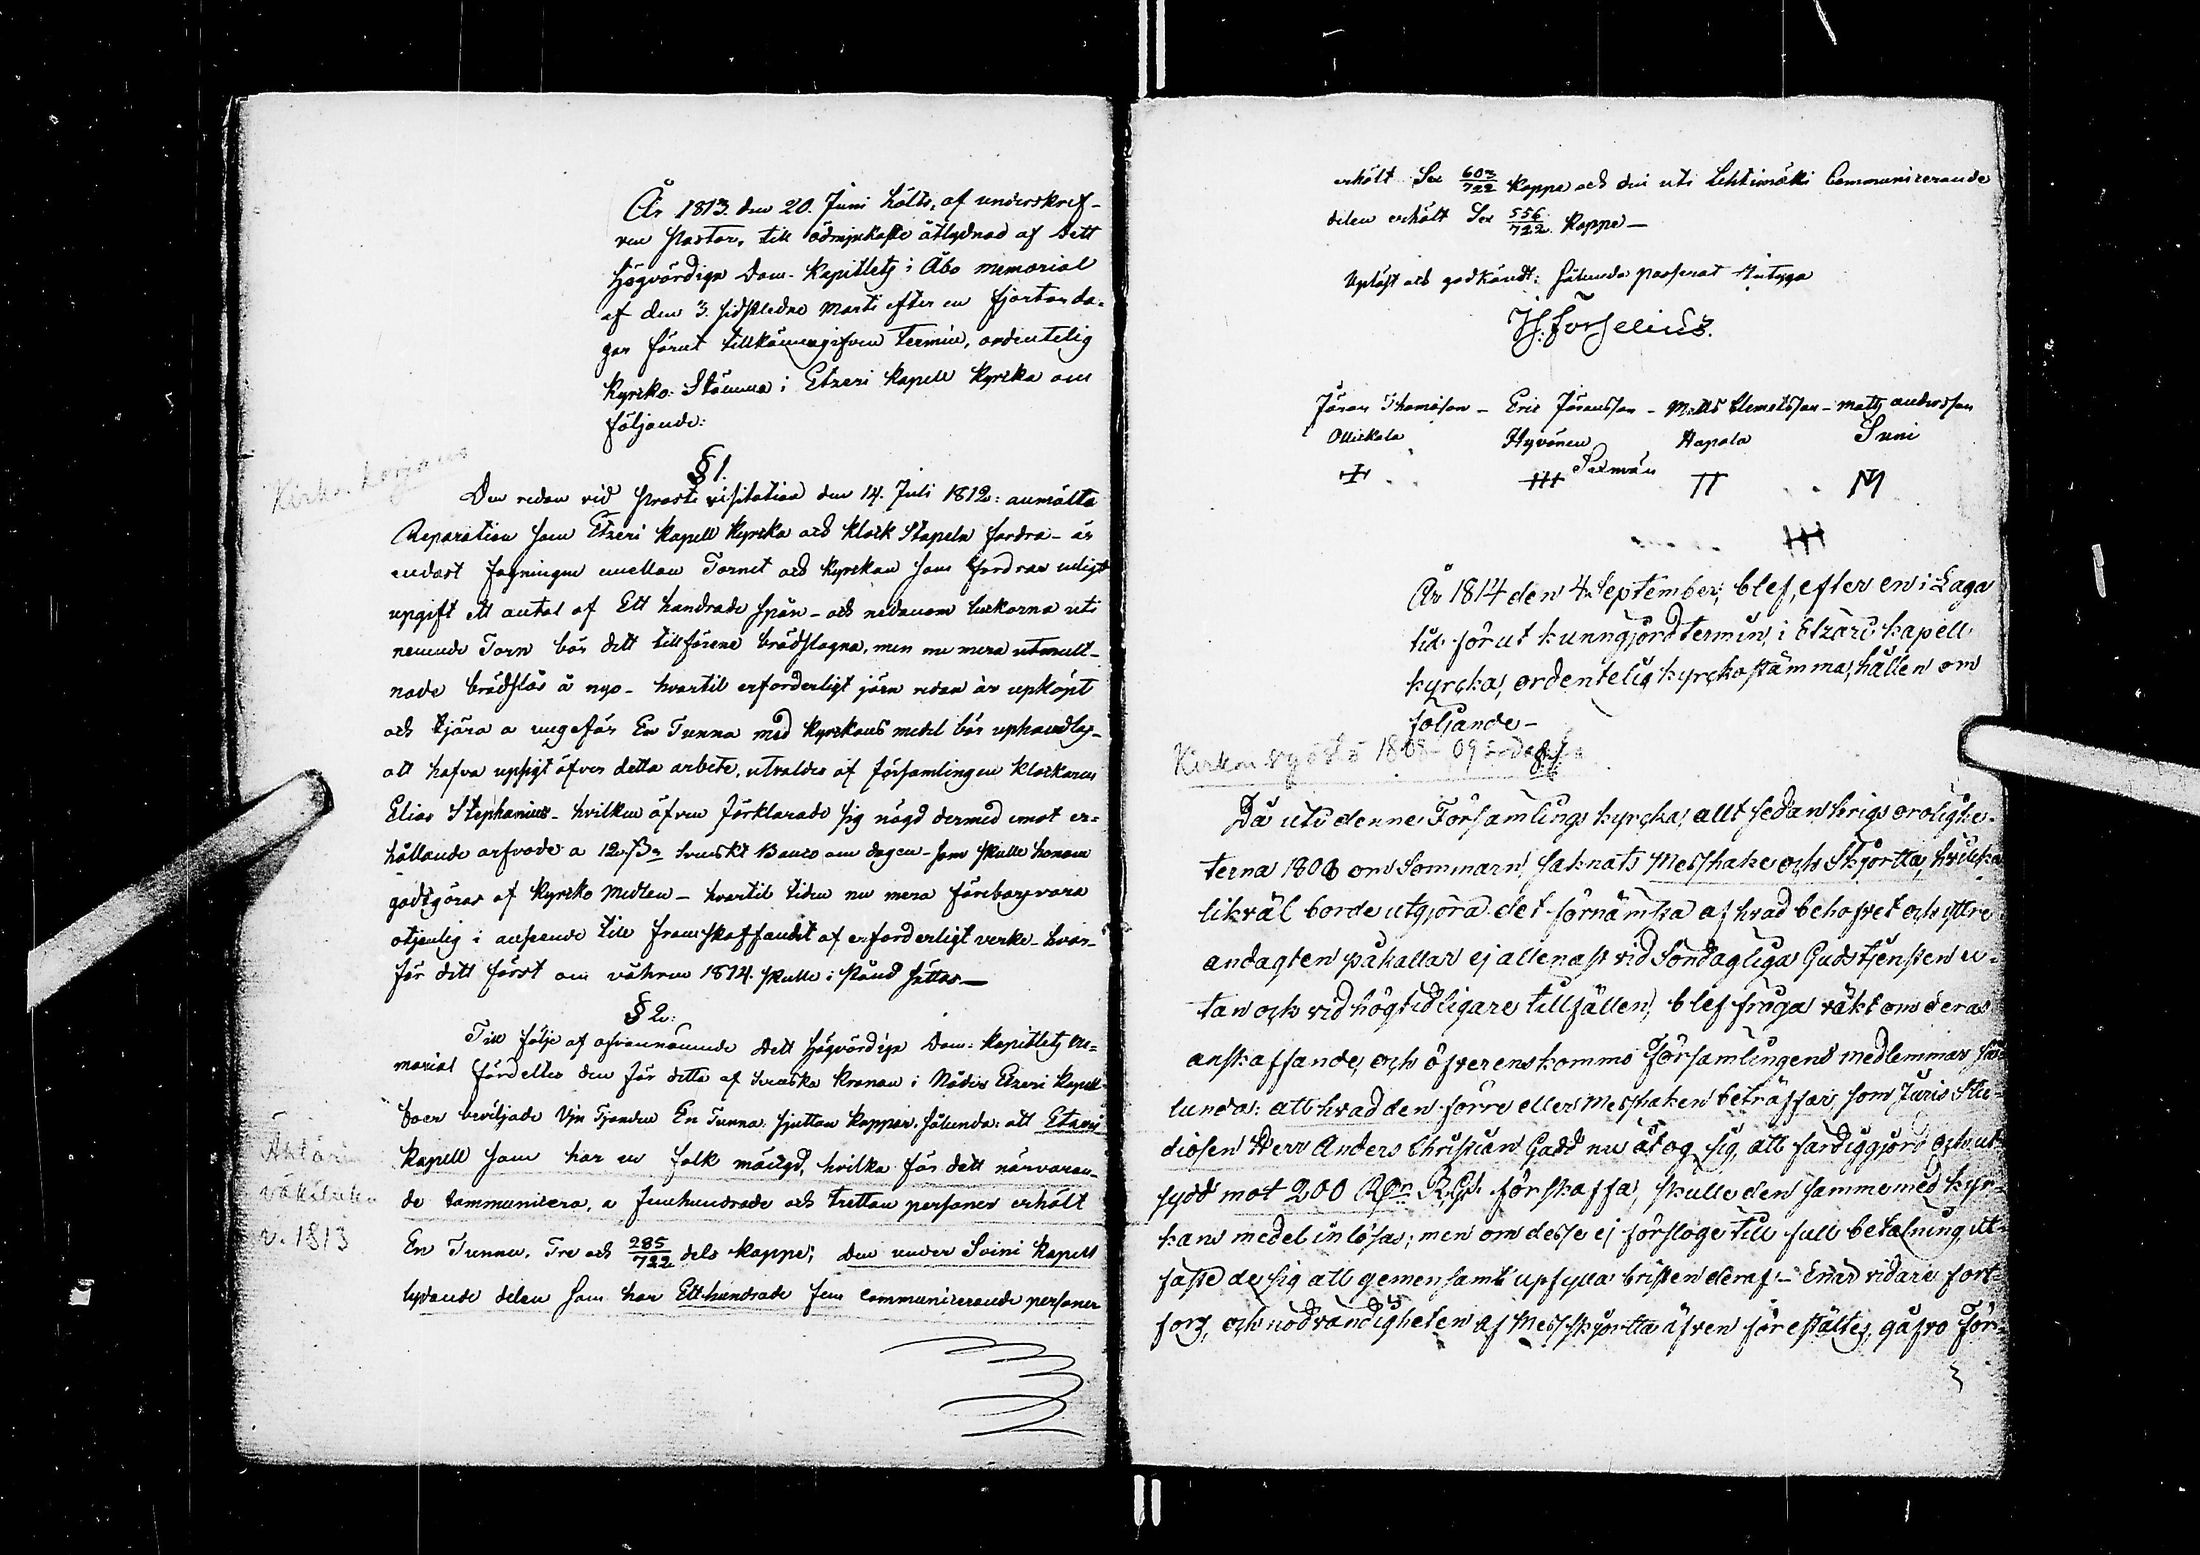 År 1813. den 20. Juni hölts, af underskref-
ven Pastor, till ödmjukaste åtlydnad af Dett
Högvördiga Dom-Kapitlets i Åbo memorial
af den 3. sidstledne Marti efter en fjorton da-
gar förut tillkännagifven Termin, ordentelig
Kyrko-Stämma i Etzeri Kapell Kyrka om
följande:
Kirkon korjaus
§ 1.
Den redan vid Prosti visitation den 14. Juli 1812: anmälta
Reparation som Etzeri Kapell Kyrka och Klock Stapeln fordra- är
endast fogningen emellan Tornet och Kyrkan som fordrar enligt
upgift ett antal af Ett hundrade spån- och nedanom luckorna uti
nemnde Torn bör dett tillförene brädslagna, men nu mera utmult-
nade brädslås å nyo- hvartil erforderligt järn redan är upköpt
och tjära a ungefär En Tunna med Kyrkans medel bör uphandlas-
att hafva upsigt öfver detta arbete, utvaldes af församlingen Klockaren
Elias Stephanius- hvilken äfven förklarade sig nögd dermed emot er-
hållande arfvode a 12 ß Svenskt Banco om dagen- som skulle honom
godtgöras af Kyrko Medlen- hvartil tiden nu mera förebars vara
otjenlig i anseende till framskaffandet af erforderligt verke- hvar-
för dett först om våhren 1814. skulle i stånd sättas-
§ 2:
Till följe af ofvannämnde Dett Högvördiga Dom-Kapitlets Me-
morial fördeltes den för detta af Svenska Kronan i Nåder Etzeri Kapell-
boer beviljade Vin Tjonden En Tunna sjutton kappar, sålunda: att Etzeri
Äktäri
Kapell som har en folk mängd, hvilka för dett närvaran-
väkiluku
de Communicera, a femhundrade och trettan personer erhölt
v. 1813
En Tunna, Tre och 285/722 dels kappe; den under Soini Kapell
lydande delen som har Etthundrade fem communicerande personer
erhölt Sex 603/722 kappe och den uti Lehtimäki Communicerande
delen erhölt Sex 556/722 kappe-
Upläst och godkändt: sålunda passerat Intyga
H. Forselius.
Jöran Thomasson - Eric Jöransson - Matts Clemetsson - Matts Andersson
Ollickala Hyvönen Hapala Suni
Salmén
År 1814 den 4 September, blef, efter en i Laga
tid förut kunngjord termin, i Etzäri kapell
kyrcka, ordentelig kyrckostämma, hållen om
följande-
Kirkon ryöstö 1808-09 sodassa
Då uti denne Församlings kyrcka, allt sedan krigs orolighe-
terna 1808 om Sommarn, saknats Messhake och Skjortta, hvilka
likväl borde utgjöra det förnämsta af hvad behofvet och yttre
andagten påkallar ej allenast vid Söndagliga Gudstjensten u-
tan och vid högtidligare tillfällen, blef fråga väkt om deras
anskaffande, och öfverenskommo Församlingens medlemmar så-
lunda: att hvad den förre eller Messhaken beträffar, som Juris Stu-
diosen Herr Anders Christian Gadd nu åtog sig, att färdiggjord och ut-
sydd mot 200 RDr. RGds. förskaffa, skulle den samme med kyr-
kans medel inlösas; men om desse ej försloge till full betalning, ut-
faste de sig att gemensamt upfylla bristen deraf.- Enär vidare fort-
fors, och nödvändigheten af Messkjortta äfven förestältes, gåfvo För-